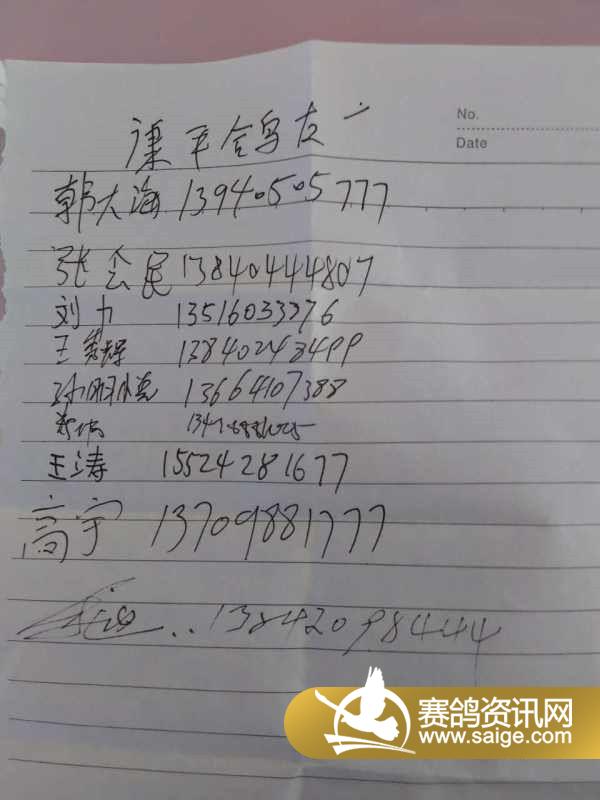 No.
Date
康平鸽友
韩大海 13940505777
张会民 13840444807
刘力 13516033276
王秀辉 13840243499
13664107388
王涛 15524281677
高宇 13709881777
13842098444
赛鸽资讯网
www.saige.com